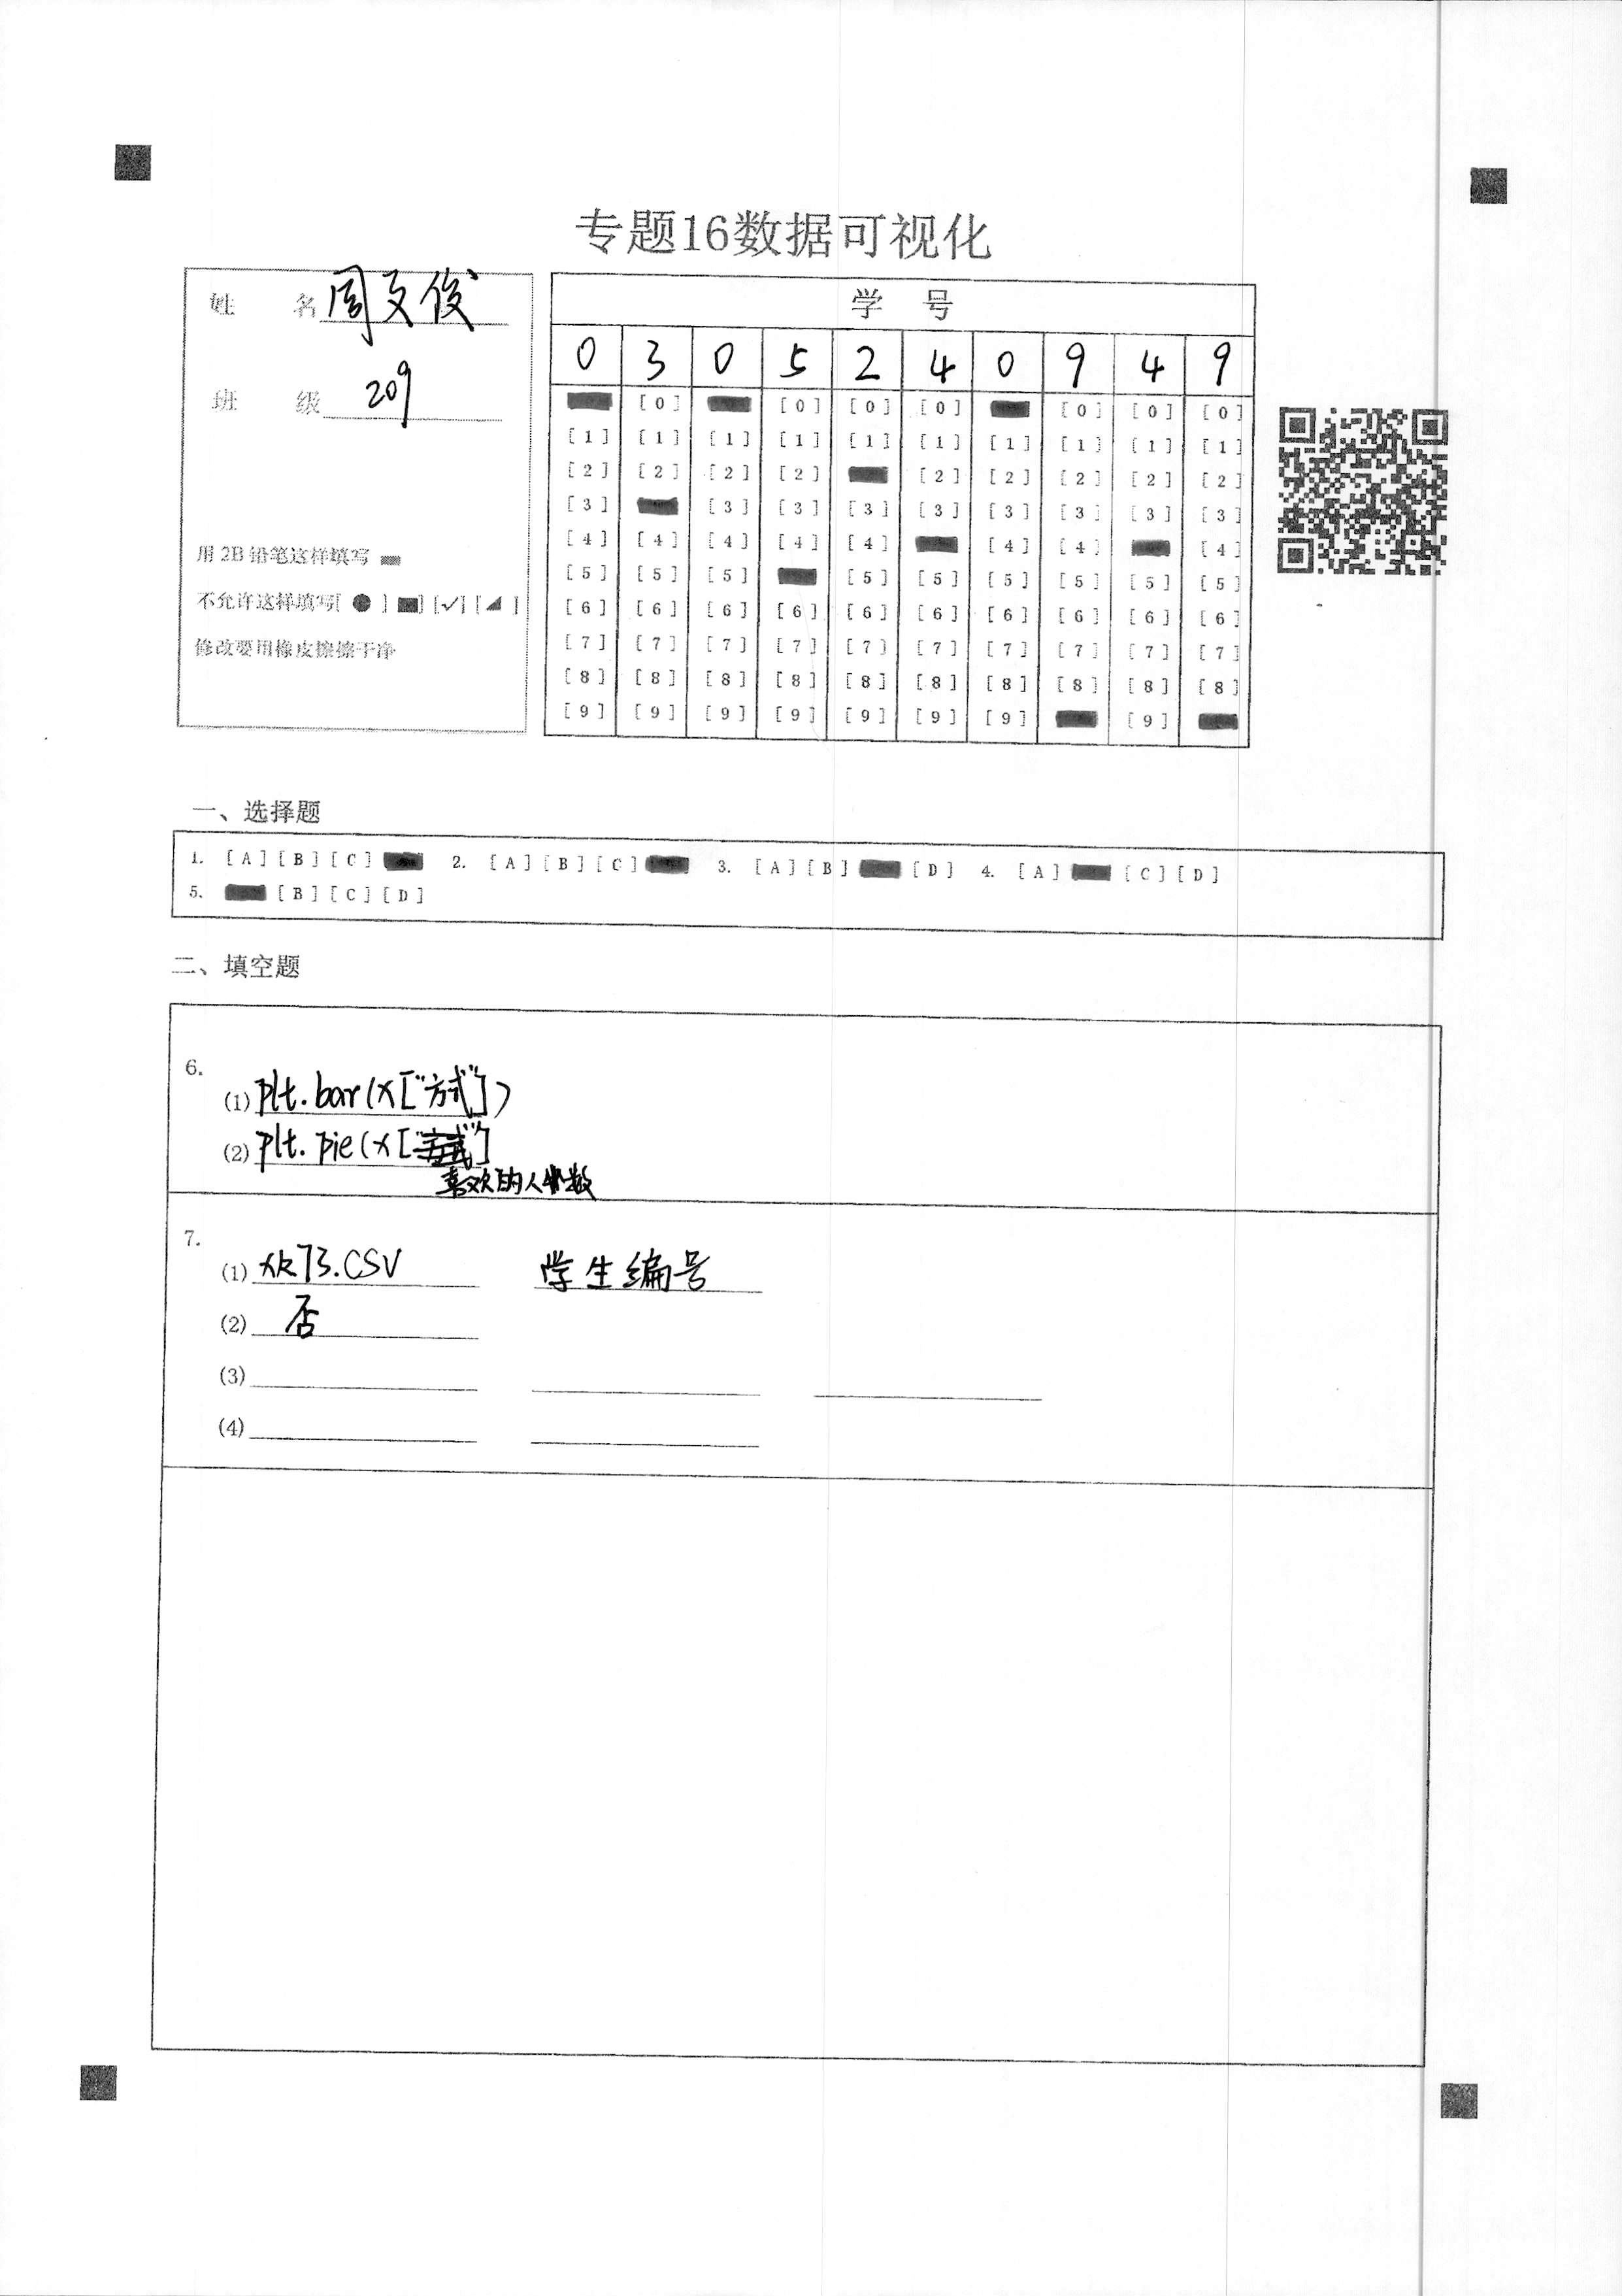 专题16数据可视化
姓 名 周文俊
班 级 209
用 2B 铅笔这样填写
不允许这样填写[ ● ] [■] [✓] [◢ ]
修改要用橡皮擦擦干净
学 号
0 3 0 5 2 4 0 9 4 9
[0] [0] [0] [0] [0] [0] [0]
[1] [1] [1] [1] [1] [1] [1] [1] [1] [1]
[2] [2] [2] [2] [2] [2] [2] [2] [2]
[3] [3] [3] [3] [3] [3] [3] [3] [3]
[4] [4] [4] [4] [4] [4] [4] [4]
[5] [5] [5] [5] [5] [5] [5] [5] [5]
[6] [6] [6] [6] [6] [6] [6] [6] [6] [6]
[7] [7] [7] [7] [7] [7] [7] [7] [7] [7]
[8] [8] [8] [8] [8] [8] [8] [8] [8] [8]
[9] [9] [9] [9] [9] [9] [9] [9]
一、选择题
1. [A] [B] [C] 2. [A] [B] [C] 3. [A] [B] [D] 4. [A] [C] [D]
5. [B] [C] [D]
二、填空题
6.
(1) plt.bar(x["方式"])
(2) plt.pie(x[""]
喜欢的人数
7.
(1) .CSV 学生编号
(2) 否
(3)
(4)